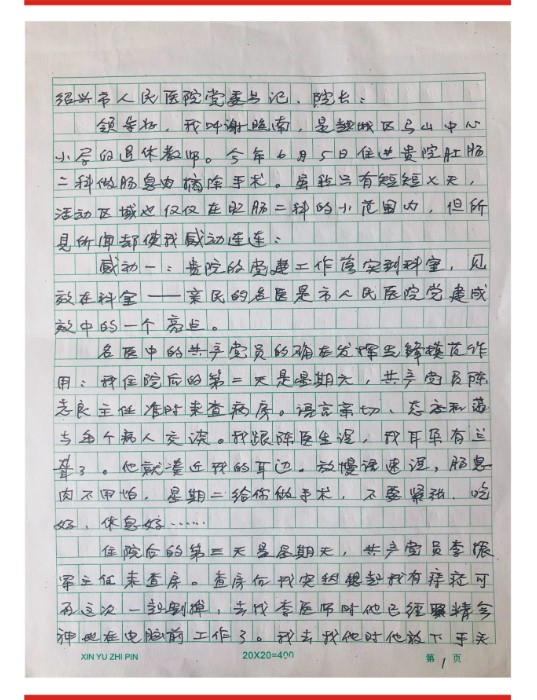 绍兴市人民医院党委书记、院长:
领导好,我叫谢,是越城区马山中心
小学的退休教师。今年6月5日住进贵院肛肠
二科做肠息肉摘除手术。虽然只有短短×天,
活动区域也仅仅在肛肠二科的小范围内,但所
见所闻却使我感动连连:
感动一:贵院的党建工作落实到科室,见
效在科室——亲民的名医是市人民医院党建成
效中的一个亮点。
名医中的共产党员的确在发挥先锋模范作
用:我住院后的第二天是星期六,共产党员陈
志良主任准时来查病房。语言亲切、态度和蔼
与每个病人交谈。我跟陈医生说,我耳朵有些
聋了。他就凑近我的耳边。放慢语速说,肠息
肉不用怕,星期二给你做手术,不要紧张,吃
好,休息好……
住院后的第三天是星期天,共产党员李振
军主任来查房。查房后我突然想起我有痔疮可
否这次一起割掉,去找李医师时他已经聚精会
神地在电脑前工作了。我去找他时他放下手头
XIN YU ZHI PIN
20X20=400
第1页